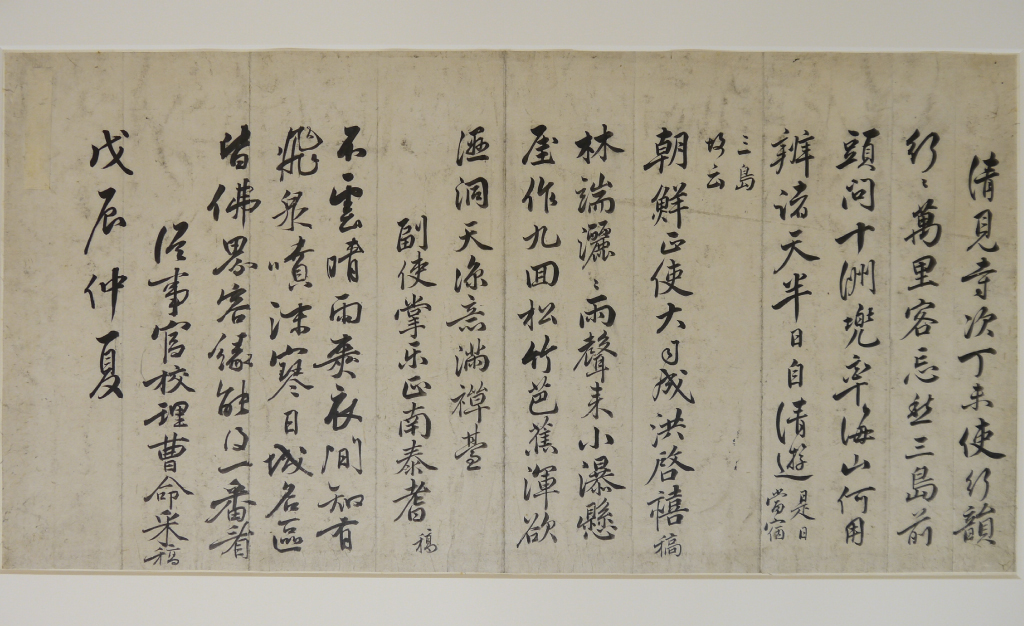 清見寺次丁未使行韻
行〻萬里客忘愁三島前
頭問十洲兜率海山何用
辨諸天半日自清遊是日
當宿
三島
故云
朝鮮正使大司成洪啓禧稿
林端灑〻雨聲来小瀑懸
崖作九回松竹芭蕉渾欲
洒洞天凉意滿禪臺
副使掌樂正南泰耆稿
不雲晴雨爽衣間知有
飛泉噴沫寒日城名區
皆佛界客緣能得一番看
從事官校理曹命采稿
戊辰仲夏